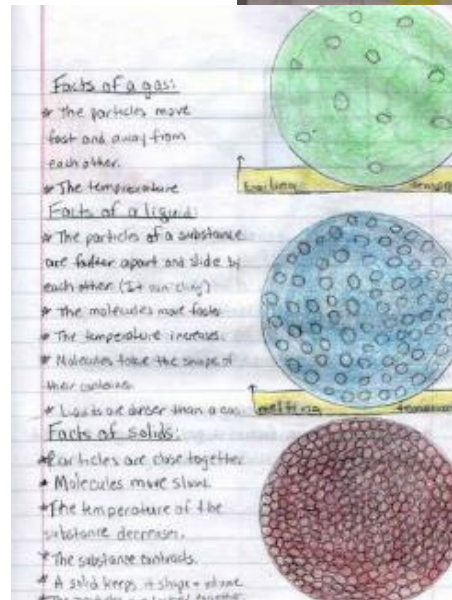 Facts of a gas:
* The particles move
fast and away from
each other.
* The temperature
boiling
Facts of a liquid:
* The particles of a substance
are farther apart and slide by
each other (It can cling)
* The molecules move faster
* The temperature increases.
* Molecules take the shape of
their container.
* Liquids are denser than a gas
melting
Facts of solids:
* Particles are close together
* Molecules move slow.
* The temperature of the
substance decreases.
* The substance contracts.
* A solid keeps it shape + volume